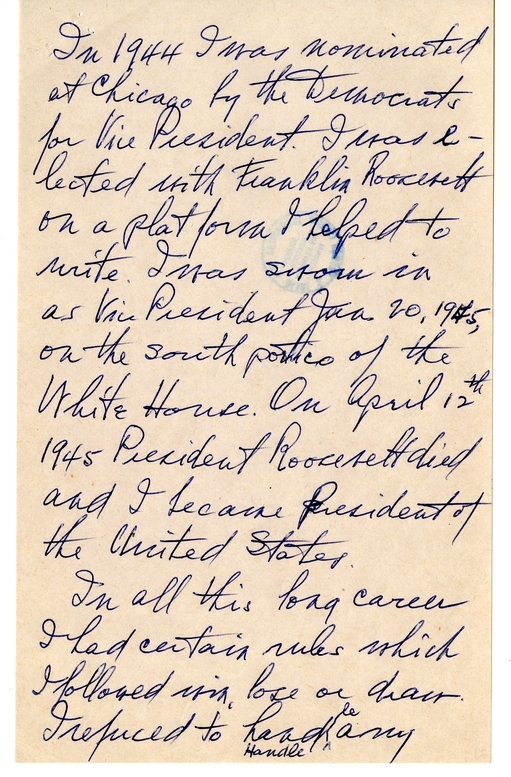 In 1944 I was nominated
at Chicago by the Democrats
for Vice President. I was e-
lected with Franklin Roosevelt
on a platform I helped to
write. I was sworn in
as Vice President Jan. 20, 1945,
on the south portico of the
White House. On April 12th
1945 President Roosevelt died
and I became President of
the United States.
In all this long career
I had certain rules which
I followed win, lose or draw.
I refused to handle any
Handle